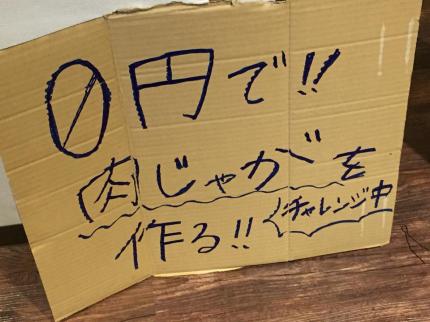 0円で!!
肉じゃがを
作る!! チャレンジ中